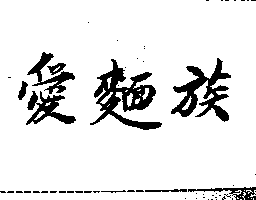 愛麵族